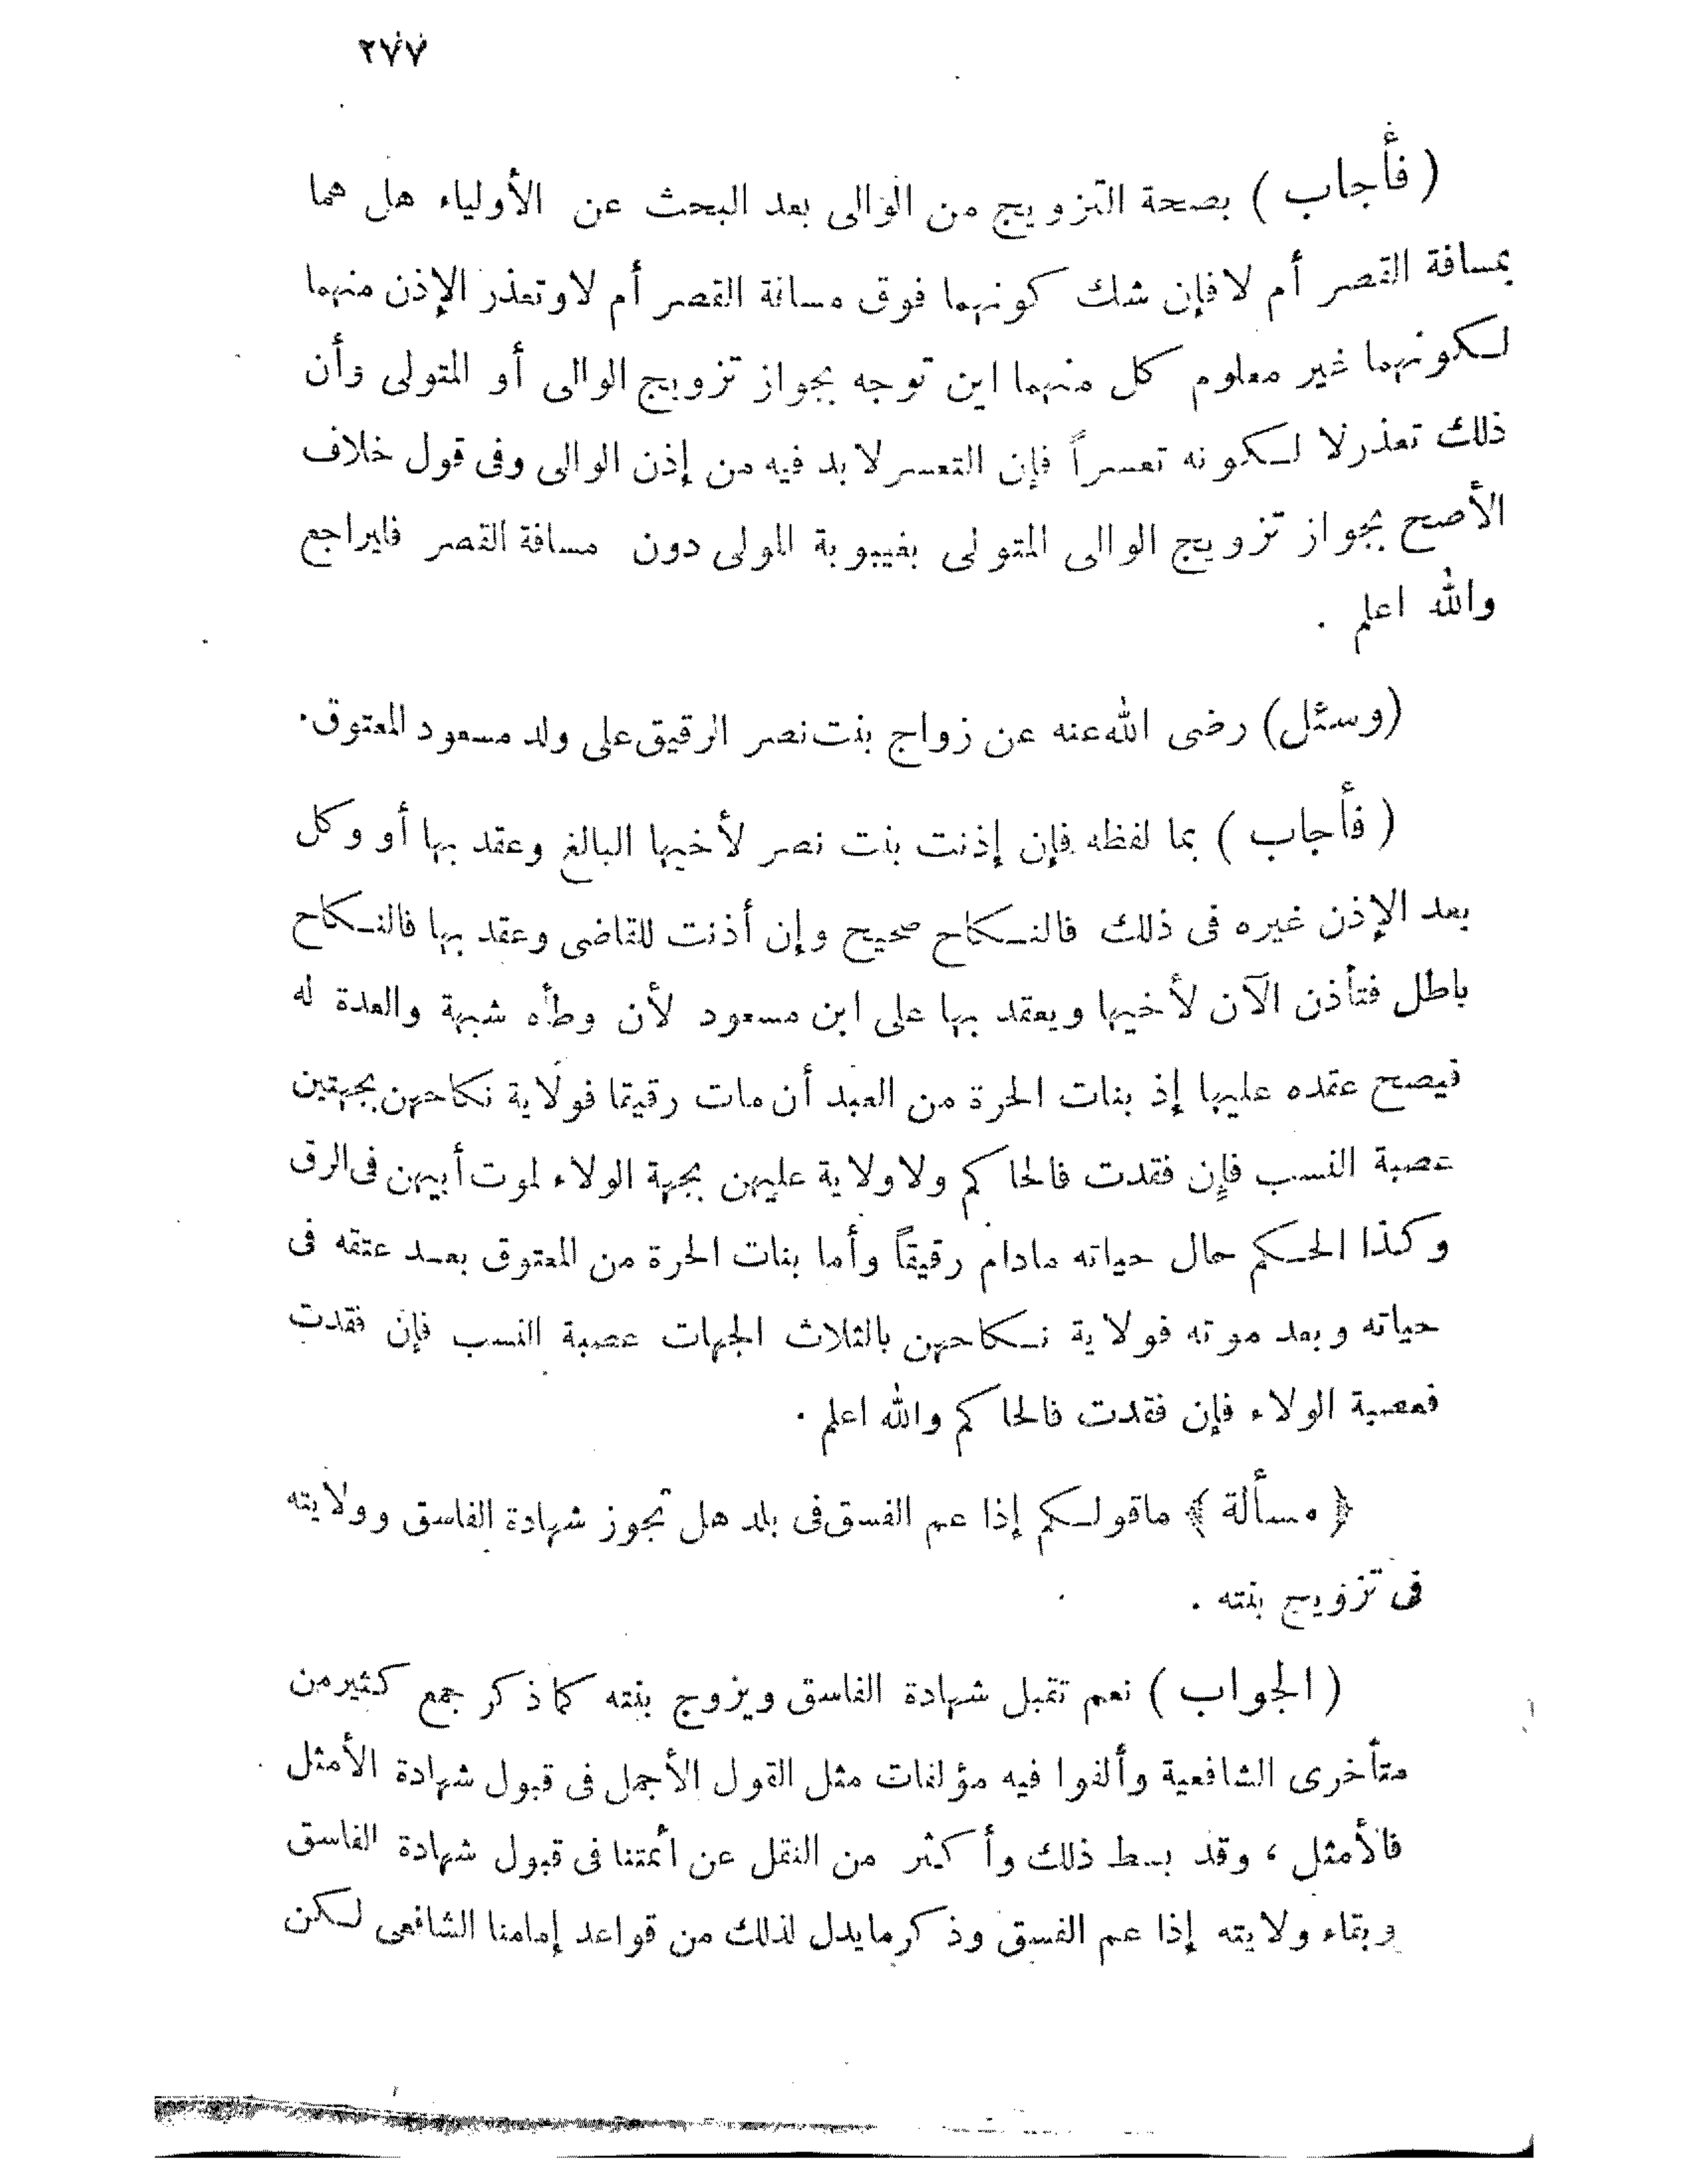 ٢٧٧
( فأجاب ) بصحة التزويج من الوالى بعد البحث عن الأولياء هل هما
بمسافة القصر أم لا فإن شك كونهما فوق مسافة القصر أم لا وتعذر الإذن منهما
لكونهما غير معلوم كل منهما اين توجه بجواز تزويج الوالى أو المتولى وأن
ذلك تعذر لا لكونه تعسراً فإن التعسر لا بد فيه من إذن الوالى وفى قول خلاف
الأصح بجواز تزويج الوالى المتولى بغيبوبة المولى دون مسافة القصر فليراجع
والله اعلم .
(وسئل) رضى الله عنه عن زواج بنت نصر الرقيق على ولد مسعود المعتوق .
( فأجاب ) بما لفظه فإن إذنت بنت نصر لأخيها البالغ وعقد بها أو وكل
بعد الإذن غيره فى ذلك فالنكاح صحيح وإن أذنت للقاضى وعقد بها فالنكاح
باطل فتأذن الآن لأخيها ويعقد بها على ابن مسعود لأن وطأه شبهة والعدة له
فيصح عقده عليها إذ بنات الحرة من العبد أن مات رقيقا فولاية نكاحهن بجهتين
عصبة النسب فإن فقدت فالحاكم ولا ولاية عليهن بجهة الولاء لموت أبيهن فى الرق
وكذا الحكم حال حياته مادام رقيقاً وأما بنات الحرة من المعتوق بعد عتقه فى
حياته وبعد موته فولاية نكاحهن بالثلاث الجهات عصبة النسب فإن فقدت
فعصبة الولاء فإن فقدت فالحاكم والله اعلم .
﴿ مسألة ﴾ ماقولكم إذا عم الفسق فى بلد هل تجوز شهادة الفاسق وولايته
فى تزويج بنته .
( الجواب ) نعم تقبل شهادة الفاسق ويزوج بنته كما ذكر جمع كثير من
متأخرى الشافعية وألفوا فيه مؤلفات مثل القول الأجمل فى قبول شهادة الأمثل
فالأمثل ، وقد بسط ذلك وأكثر من النقل عن أئمتنا فى قبول شهادة الفاسق
وبقاء ولايته إذا عم الفسق وذكر مايدل لذلك من قواعد إمامنا الشافعى لكن